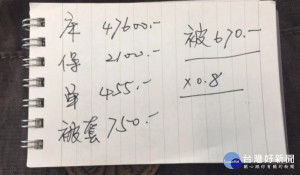 床 47600.-
保 2100.-
單 455.-
被套 750.-
被670.-
x0.8
台灣好新聞